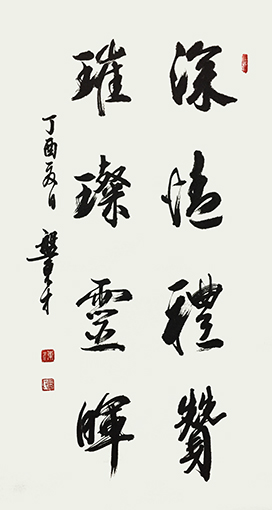 深情禮贊
璀璨靈暉
丁酉夏日